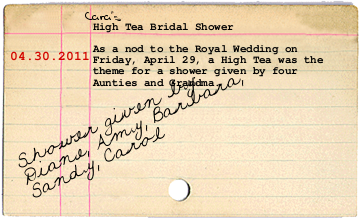 Carol's
High Tea Bridal Shower
04.30.2011
As a nod to the Royal Wedding on
Friday, April 29, a High Tea was the
theme for a shower given by four
Aunties and Grandma.
Shower given by
Diane, Amy, Barbara,
Sandy, Carol